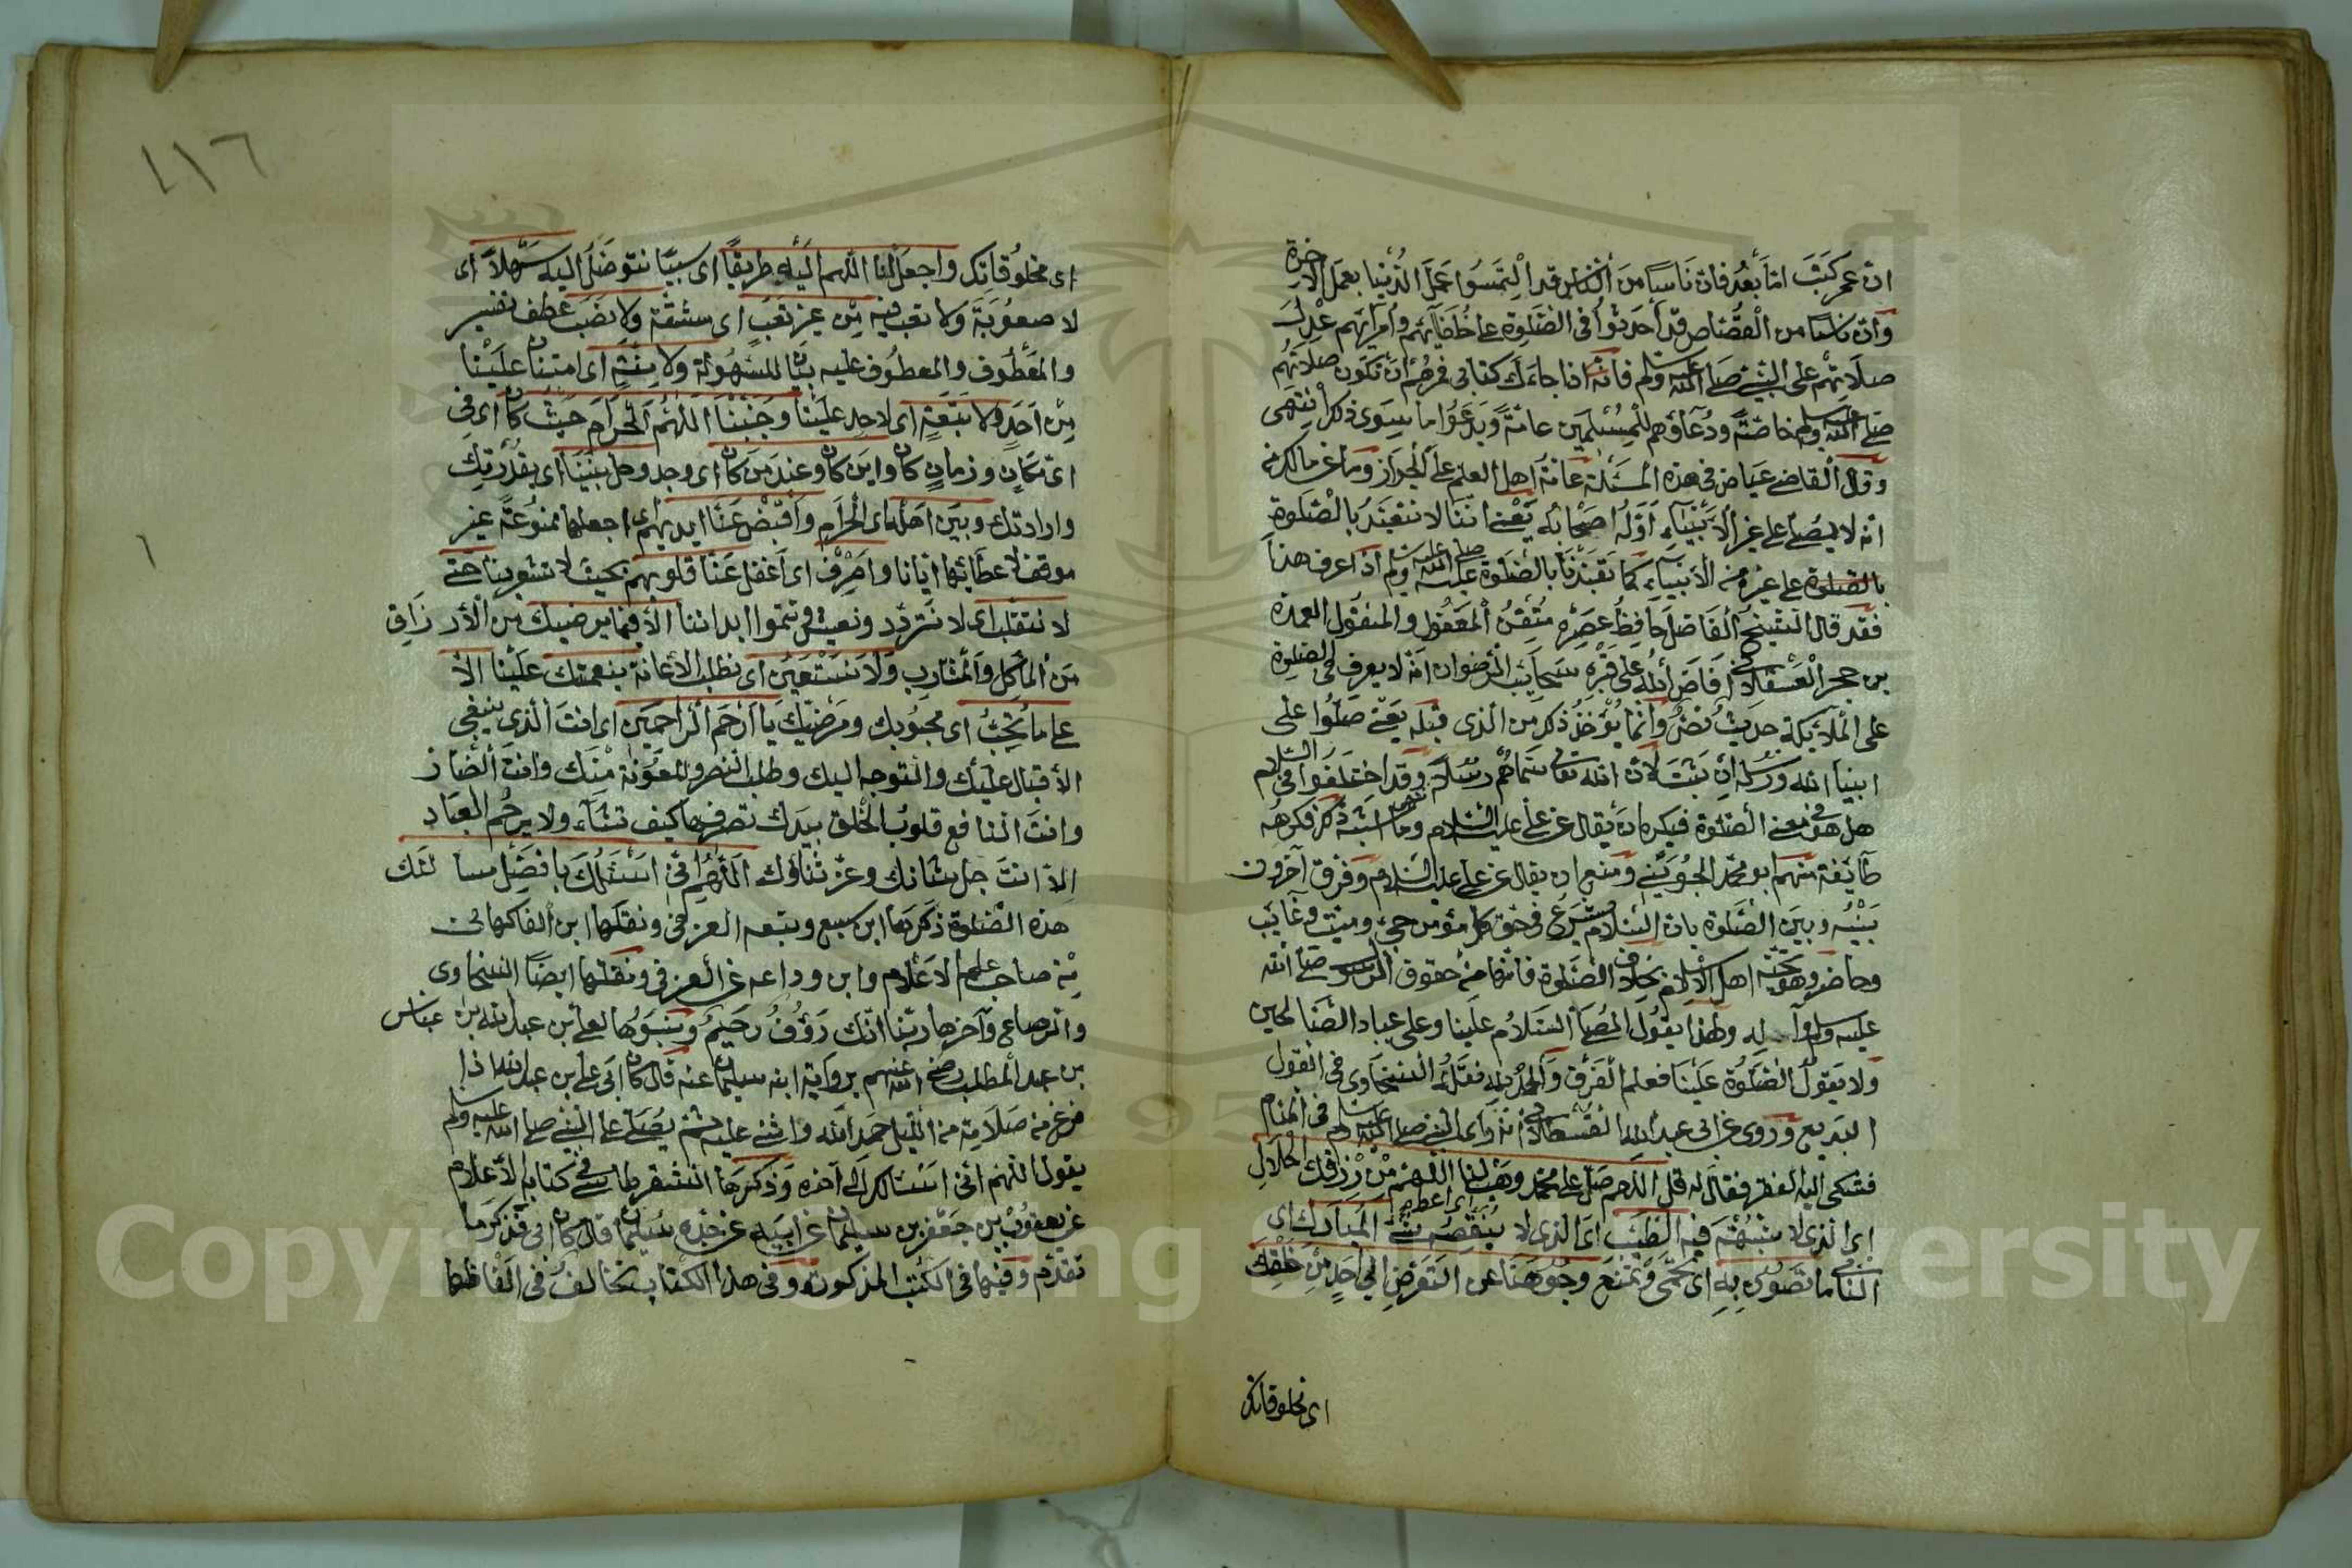 ان عمر كتب اما بعد فان ناسا من الناس قد التمسوا عمل الدنيا بعمل الآخرة
وان ناسا من القصاص قد أحدثوا في الصلوة على خلفائهم وأمرائهم عدل
صلاتهم على النبي صلى الله عليه وسلم فاذا جاءك كتابي فمرهم أن تكون صلاتهم
صلى الله عليه وسلم خاصة ودعاؤهم للمسلمين عامة ويدعوا ما سوى ذلك انتهى
وقال القاضي عياض في هذه المسئلة عامة اهل العلم على الجواز وما عن مالك
انه لا يصلى على غير الأنبياء أوله اصحابه يعني اننا لا نتعبد بالصلوة
بالصلوة على غيره من الأنبياء كما تعبدنا بالصلوة عليه صلى الله عليه وسلم اذا عرف هذا
فقد قال الشيخ الفاضل حافظ عصره متقن المعقول والمنقول العمدة
بن حجر العسقلاني افاض الله على قبره سحايب الرضوان انه لا يعرف في الصلوة
على الملائكة حديث نص وانما يؤخذ ذكر من الذي قبله يعني صلوا على
ابنيا الله ورسله ان ثبت لان الله تعالى سماهم رسلا وقد اختلفوا في السلام
هل هو في معنى الصلوة فيكره ان يقال عن علي عليه السلام وما اشبه ذلك فكرهه
طايفة منهم ابو محمد الجويني ومنع ان يقال عن علي عليه السلام وفرق آخرون
بينه وبين الصلوة بان السلام يشرع في حق كل مؤمن حي وميت وغايب
وحاضر وهو تحية اهل الاسلام بخلاف الصلوة فانها من حقوق الرسول صلى الله
عليه وسلم وآله ولهذا يقول المصلي السلام علينا وعلى عباد الله الصالحين
ولا يقول الصلوة علينا فعلم الفرق والحمد لله نقله السخاوي في القول
البديع وروى عن ابي عبد الله القسطلاني انه رأى النبي صلى الله عليه وسلم في المنام
فشكى اليه الفقر فقال له قل اللهم صل على محمد وهب لنا اللهم من رزقك الحلال
اى الذي لا شبهة فيه الطيب اى الذي لا ينقصه شي المبارك اى
الناس ما تصون به اى تحمي وتمنع وجوهنا عن التعرض الى أحد من خلقك
اى مخلوقاتك
١١٦
اى مخلوقاتك واجعل لنا اللهم اليه طريقا اى سببا نتوصل اليه سهلا اى
لا صعوبة ولا تعب فيه من غير تعب اى مشقة ولا نصب عطف تفسير
والمعطوف والمعطوف عليه بيان للسهولة ولا منة اى امتنان علينا
من أحد ولا تبعة اى لاحد علينا وجنبنا اللهم الحرام حيث كان اى في
اى مكان وزمان كان واين كان وعند من كان اى وجد وحل بيننا اى بقدرتك
وارادتك وبين اهله اى الحرام واقبض عنا ايديهم اى اجعلها ممنوعة غير
موقفة لاعطائها ايانا واصرف اى اغفل عنا قلوبهم بحيث لا تشعر بنا حتى
لا نتقلب اى لا نتردد ونعيش في ابداننا الا فيما يرضيك من الأرزاق
من المأكل والمشارب ولا نستعين اى نطلب الاعانة بنعمتك علينا الا
على ما تحب اى محبوبك ومرضيك يا أرحم الراحمين اى انت الذي ينبغي
الأقبال عليك والتوجه اليك وطلب النصر والمعونة منك وانت الضار
وانت النافع قلوب الخلق بيدك تصرفها كيف تشاء ولا يرحم العباد
الا انت جل شانك وعز ثناؤك اللهم اني اسئلك بافضل مسالتك
هذه الصلوة ذكرها ابن سبع وتبعه العزفي ونقلها ابن الفاكهاني
من صاحب علم الاعلام وابن وداعه عن العزفي ونقلها ايضا السخاوي
والرصاع وآخرها ربنا انك رؤف رحيم ونسبوها لعلي بن عبد الله بن عباس
بن عبد المطلب رضي الله عنهم برواية ابنه سليمان عنه قال كان ابي علي بن عبد الله اذا
فرغ من صلاته من الليل حمد الله واثنى عليه ثم يصلي على النبي صلى الله عليه وسلم
يقول اللهم اني اسئلك الى آخره وذكرها الشقراطسي في كتابه الأعلام
عن يعقوب بن جعفر بن سليمان عن ابيه عن جده سليمان قال كان ابي فذكر ما
تقدم وفيها في الكتب المذكورة وفي هذا الكتاب تخالف في الفاظها